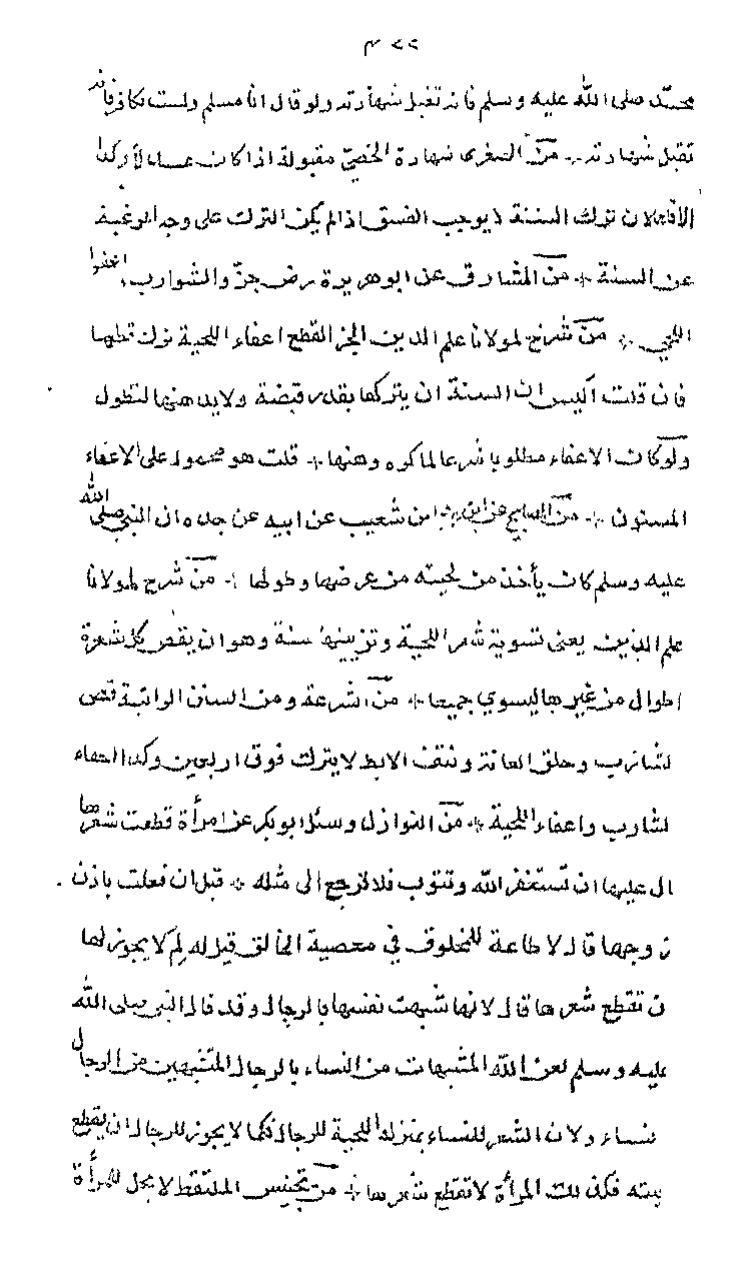 محمد صلى الله عليه وسلم فانه تقبل شهادته ولو قال انا مسلم ولست بكافر فانه
تقبل شهادته من الصغرى شهادة الخصيّ مقبولة اذا كان عدلا لا وكذا
الاقلف لان ترك السنة لا يوجب الفسق اذا لم يكن الترك على وجه الرغبة
عن السنة من المشارق عن ابو هريرة رض جزّوا الشوارب اعفوا
اللحى من شرح لمولانا علم الدين الجز القطع اعفاء اللحية ترك قطعها
فان قلت أليس ان السنة ان يتركها بقدر قبضة ولا يدعنها لتطول
ولو كان الاعفاء مطلوبا شرعا لما كره وهنها قلت هو محمول على الاعفاء
المسنون من المصابيح عن شعيب عن ابيه عن جده ان النبي صلى الله
عليه وسلم كان يأخذ من لحيته من عرضها وطولها من شرح لمولانا
علم الدين يعنى تسوية شعر اللحية وتزيينها سنة وهو ان يقص كل شعرة
اطوال من غيرها ليسوي جميعا من شرعة ومن السنن الراتبة قص
لشارب وحلق العانة ونتف الابط لا يترك فوق اربعين وكذا احفاء
لشارب واعفاء اللحية من النوازل وسئل ابو بكر عن امرأة قطعت شعرها
ال عليها ان تستغفر الله وتتوب فلا ترجع الى مثله قيل ان فعلت باذن
زوجها قال لا طاعة للمخلوق في معصية الخالق قيل له لم لا يجوز لها
ن تقطع شعرها قال لانها شبهت نفسها بالرجال وقد قال النبي صلى الله
عليه وسلم لعن الله المتشبهات من النساء بالرجال المتشبهين من الرجال
نساء ولان الشعر للنساء بمنزلة اللحية للرجال فكما لا يجوز للرجال ان يقطع
يته فكذلك المرأة لا تقطع شعرها من تجنيس الملتقط لا يحل للمرأة